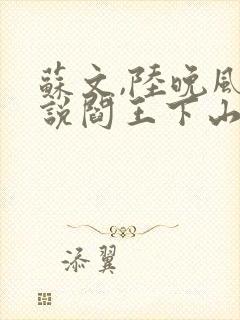 蘇文,陸晚風
說閻王下山
添翼